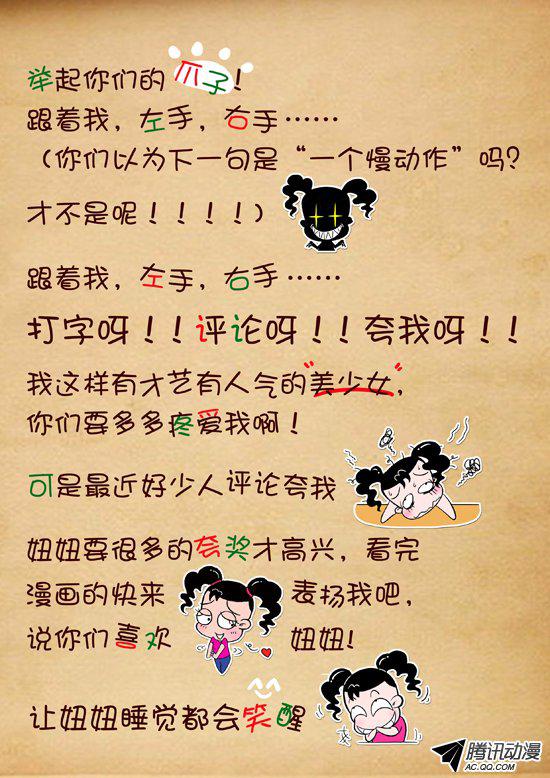 举起你们的爪子！
跟着我，左手，右手……
（你们以为下一句是“一个慢动作”吗？
才不是呢！！！！）
跟着我，左手，右手……
打字呀！！评论呀！！夸我呀！！
我这样有才艺有人气的"美少女"，
你们要多多疼爱我啊！
可是最近好少人评论夸我
妞妞要很多的夸奖才高兴，看完
漫画的快来 表扬我吧，
说你们喜欢 妞妞！
让妞妞睡觉都会笑醒
腾讯动漫
AC.QQ.COM